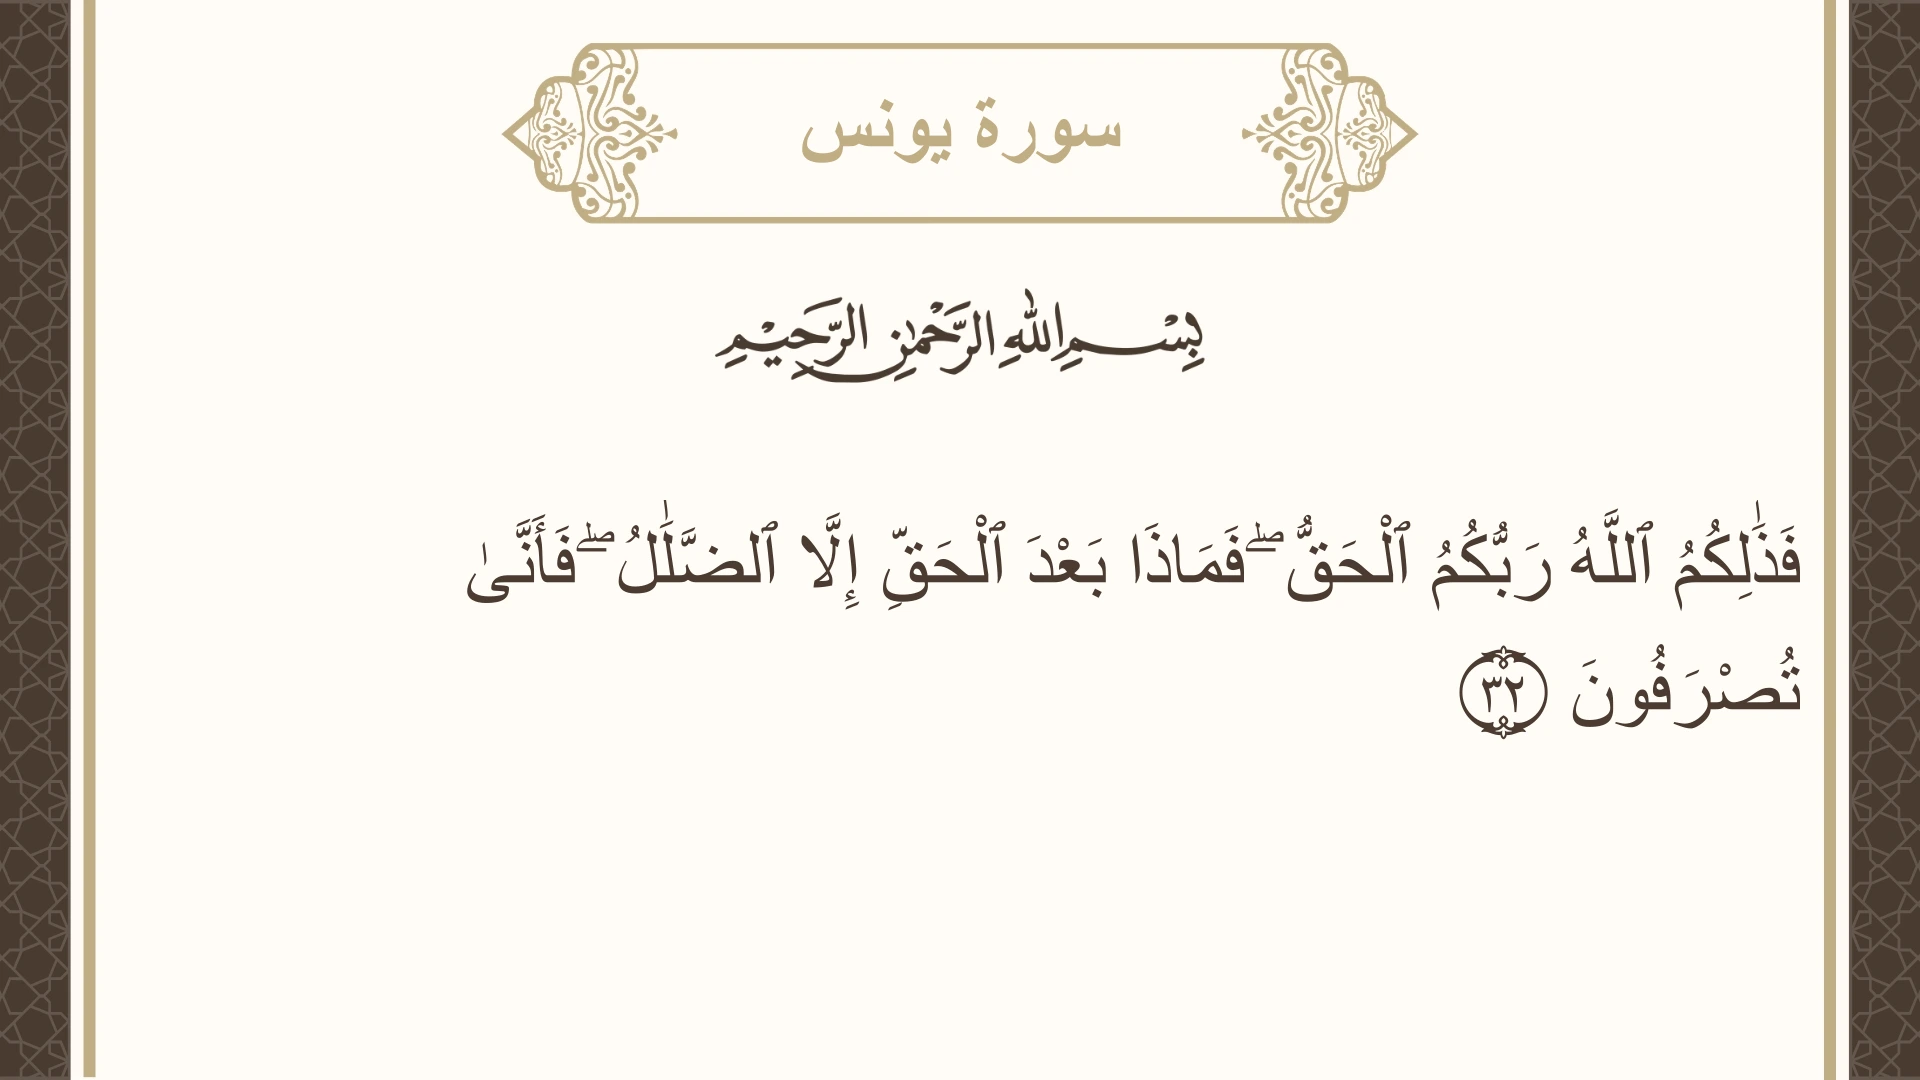 سورة يونس
بِسْمِ اللهِ الرَّحْمٰنِ الرَّحِيْمِ
فَذَٰلِكُمُ ٱللَّهُ رَبُّكُمُ ٱلْحَقُّ ۖ فَمَاذَا بَعْدَ ٱلْحَقِّ إِلَّا ٱلضَّلَٰلُ ۖ فَأَنَّىٰ
تُصْرَفُونَ ٣٢